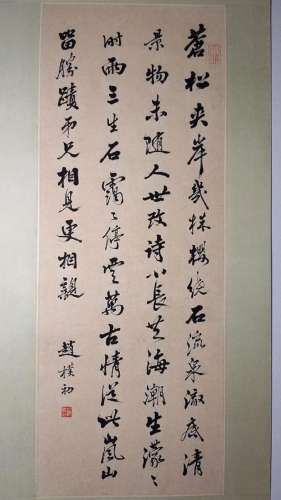 蒼松夾岸幾株櫻繞石流泉澈底清
景物未随人世改詩心長共海潮生濛々
时雨三生石靄々停雲萬古情從此嵐山
留勝蹟弟兄相見更相親
趙樸初